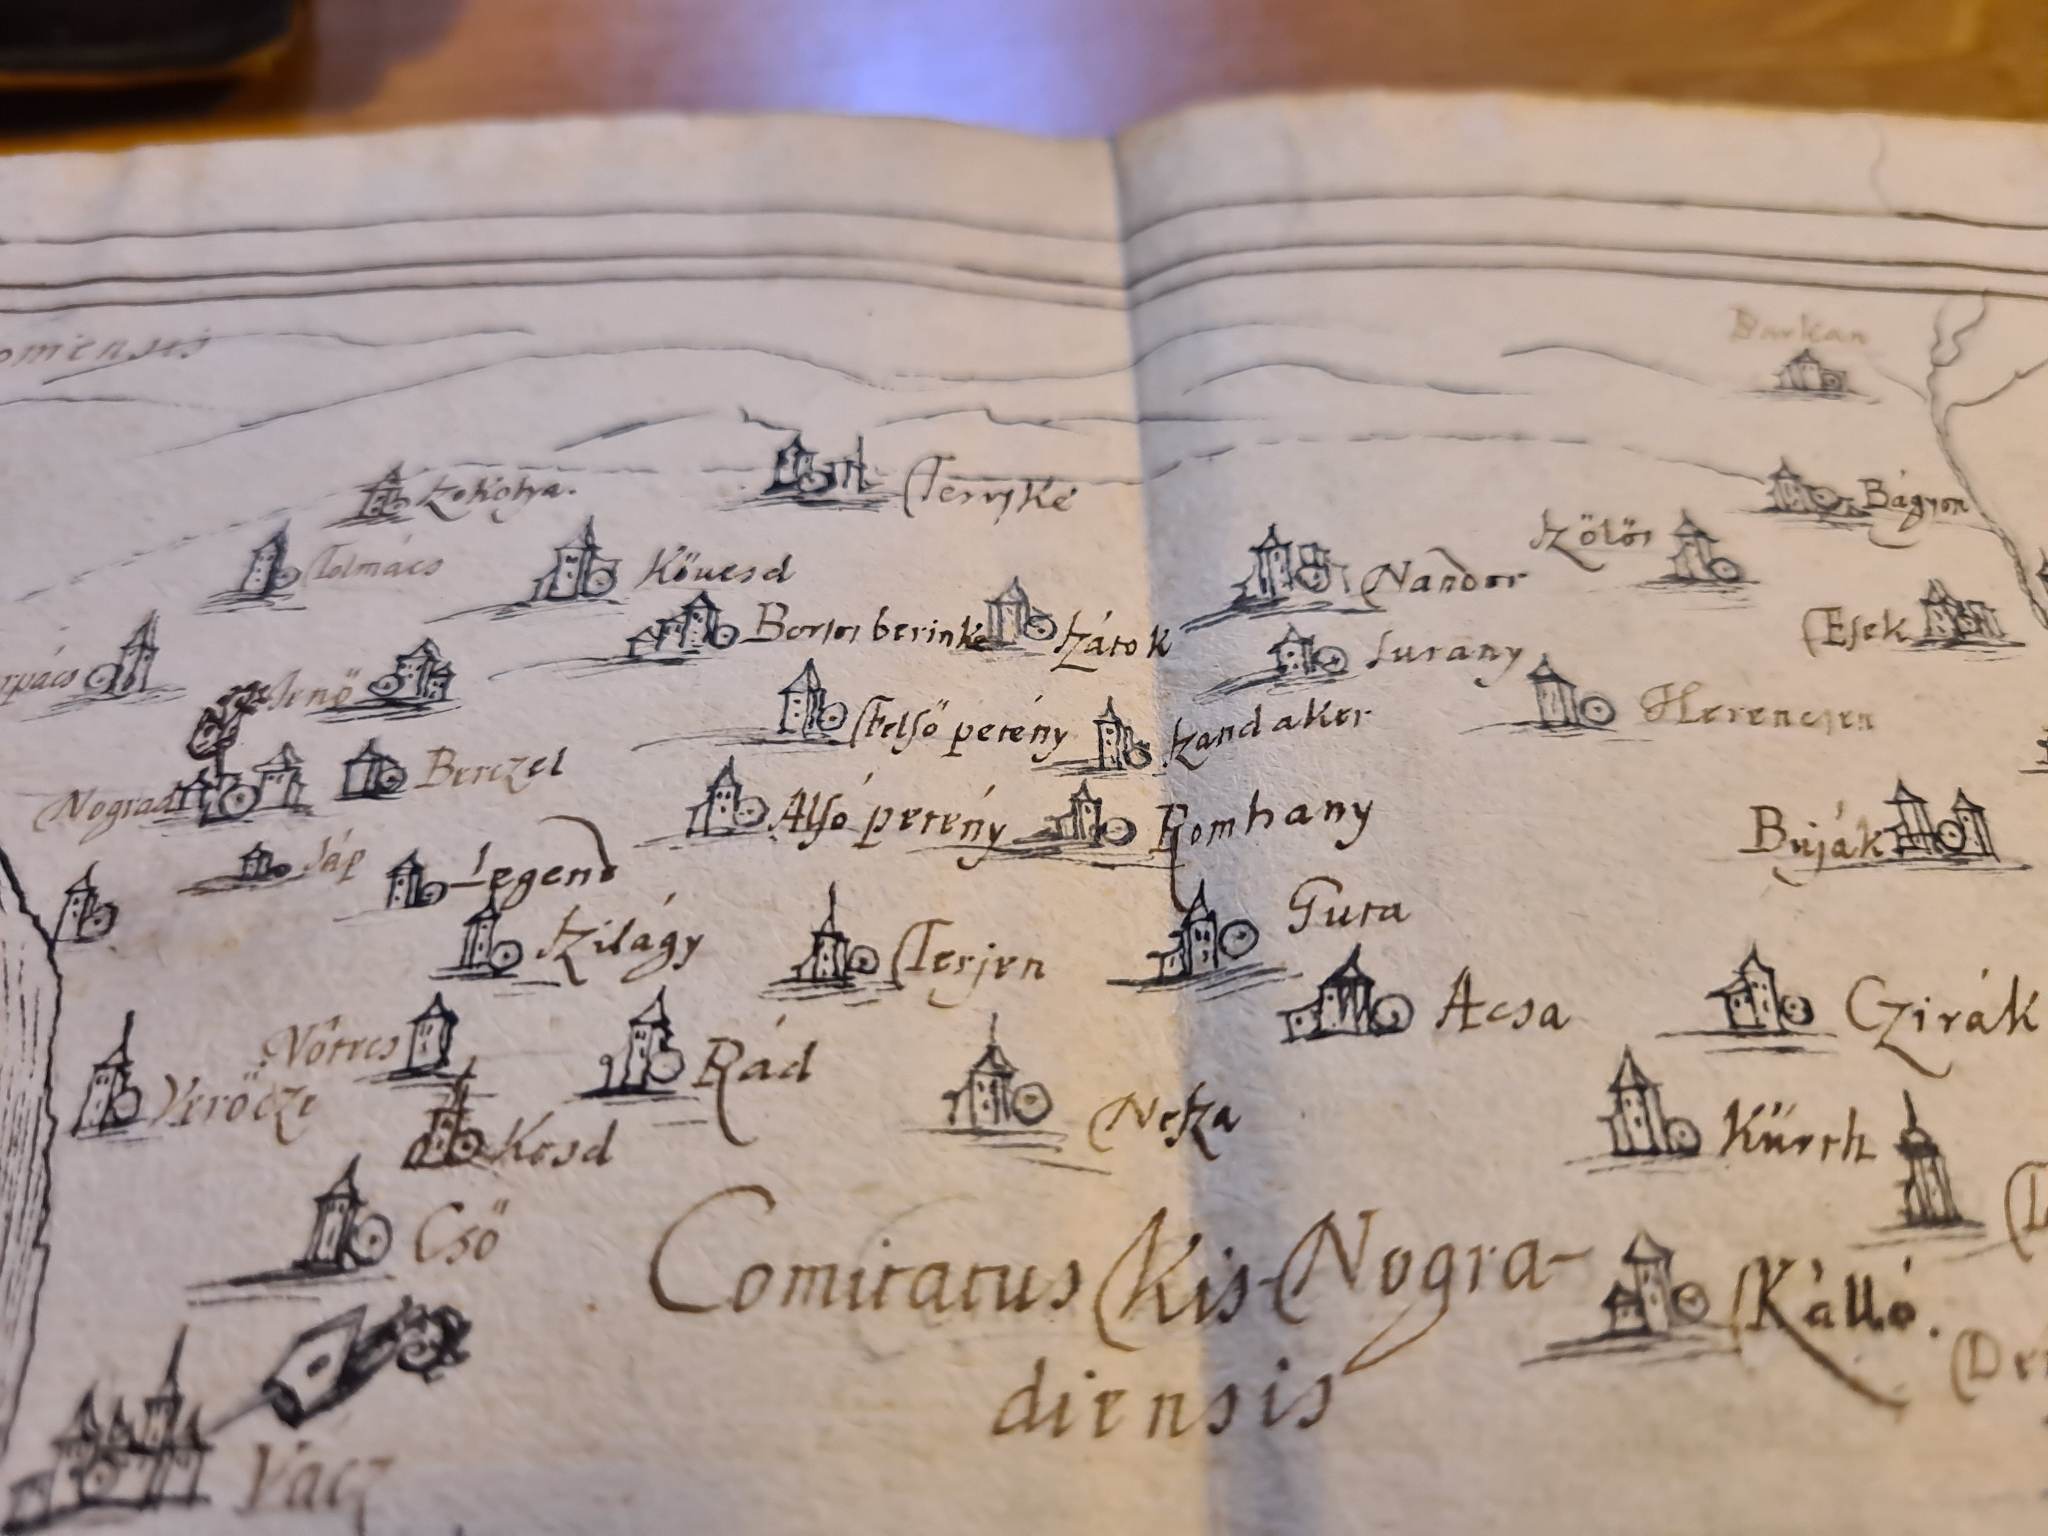 omiensis
Barkan
Tereske
Bágyon
Tolmács
Kövesd
Nandor
Szölös
Bortos berinke
Szátok
Surany
Esek
rpács
Jenö
Felsö petény
Szandaker
Herencsen
Nograd
Berczel
Alsó petény
Romhany
Buják
Jáp
Legend
Szilágy
Terjen
Guta
Acsa
Czirák
Nötrcs
Rád
Verőcze
Kosd
Nesza
Kürth
Csö
Comitatus Kis-Nogra-
diensis
Kálló.
Vácz